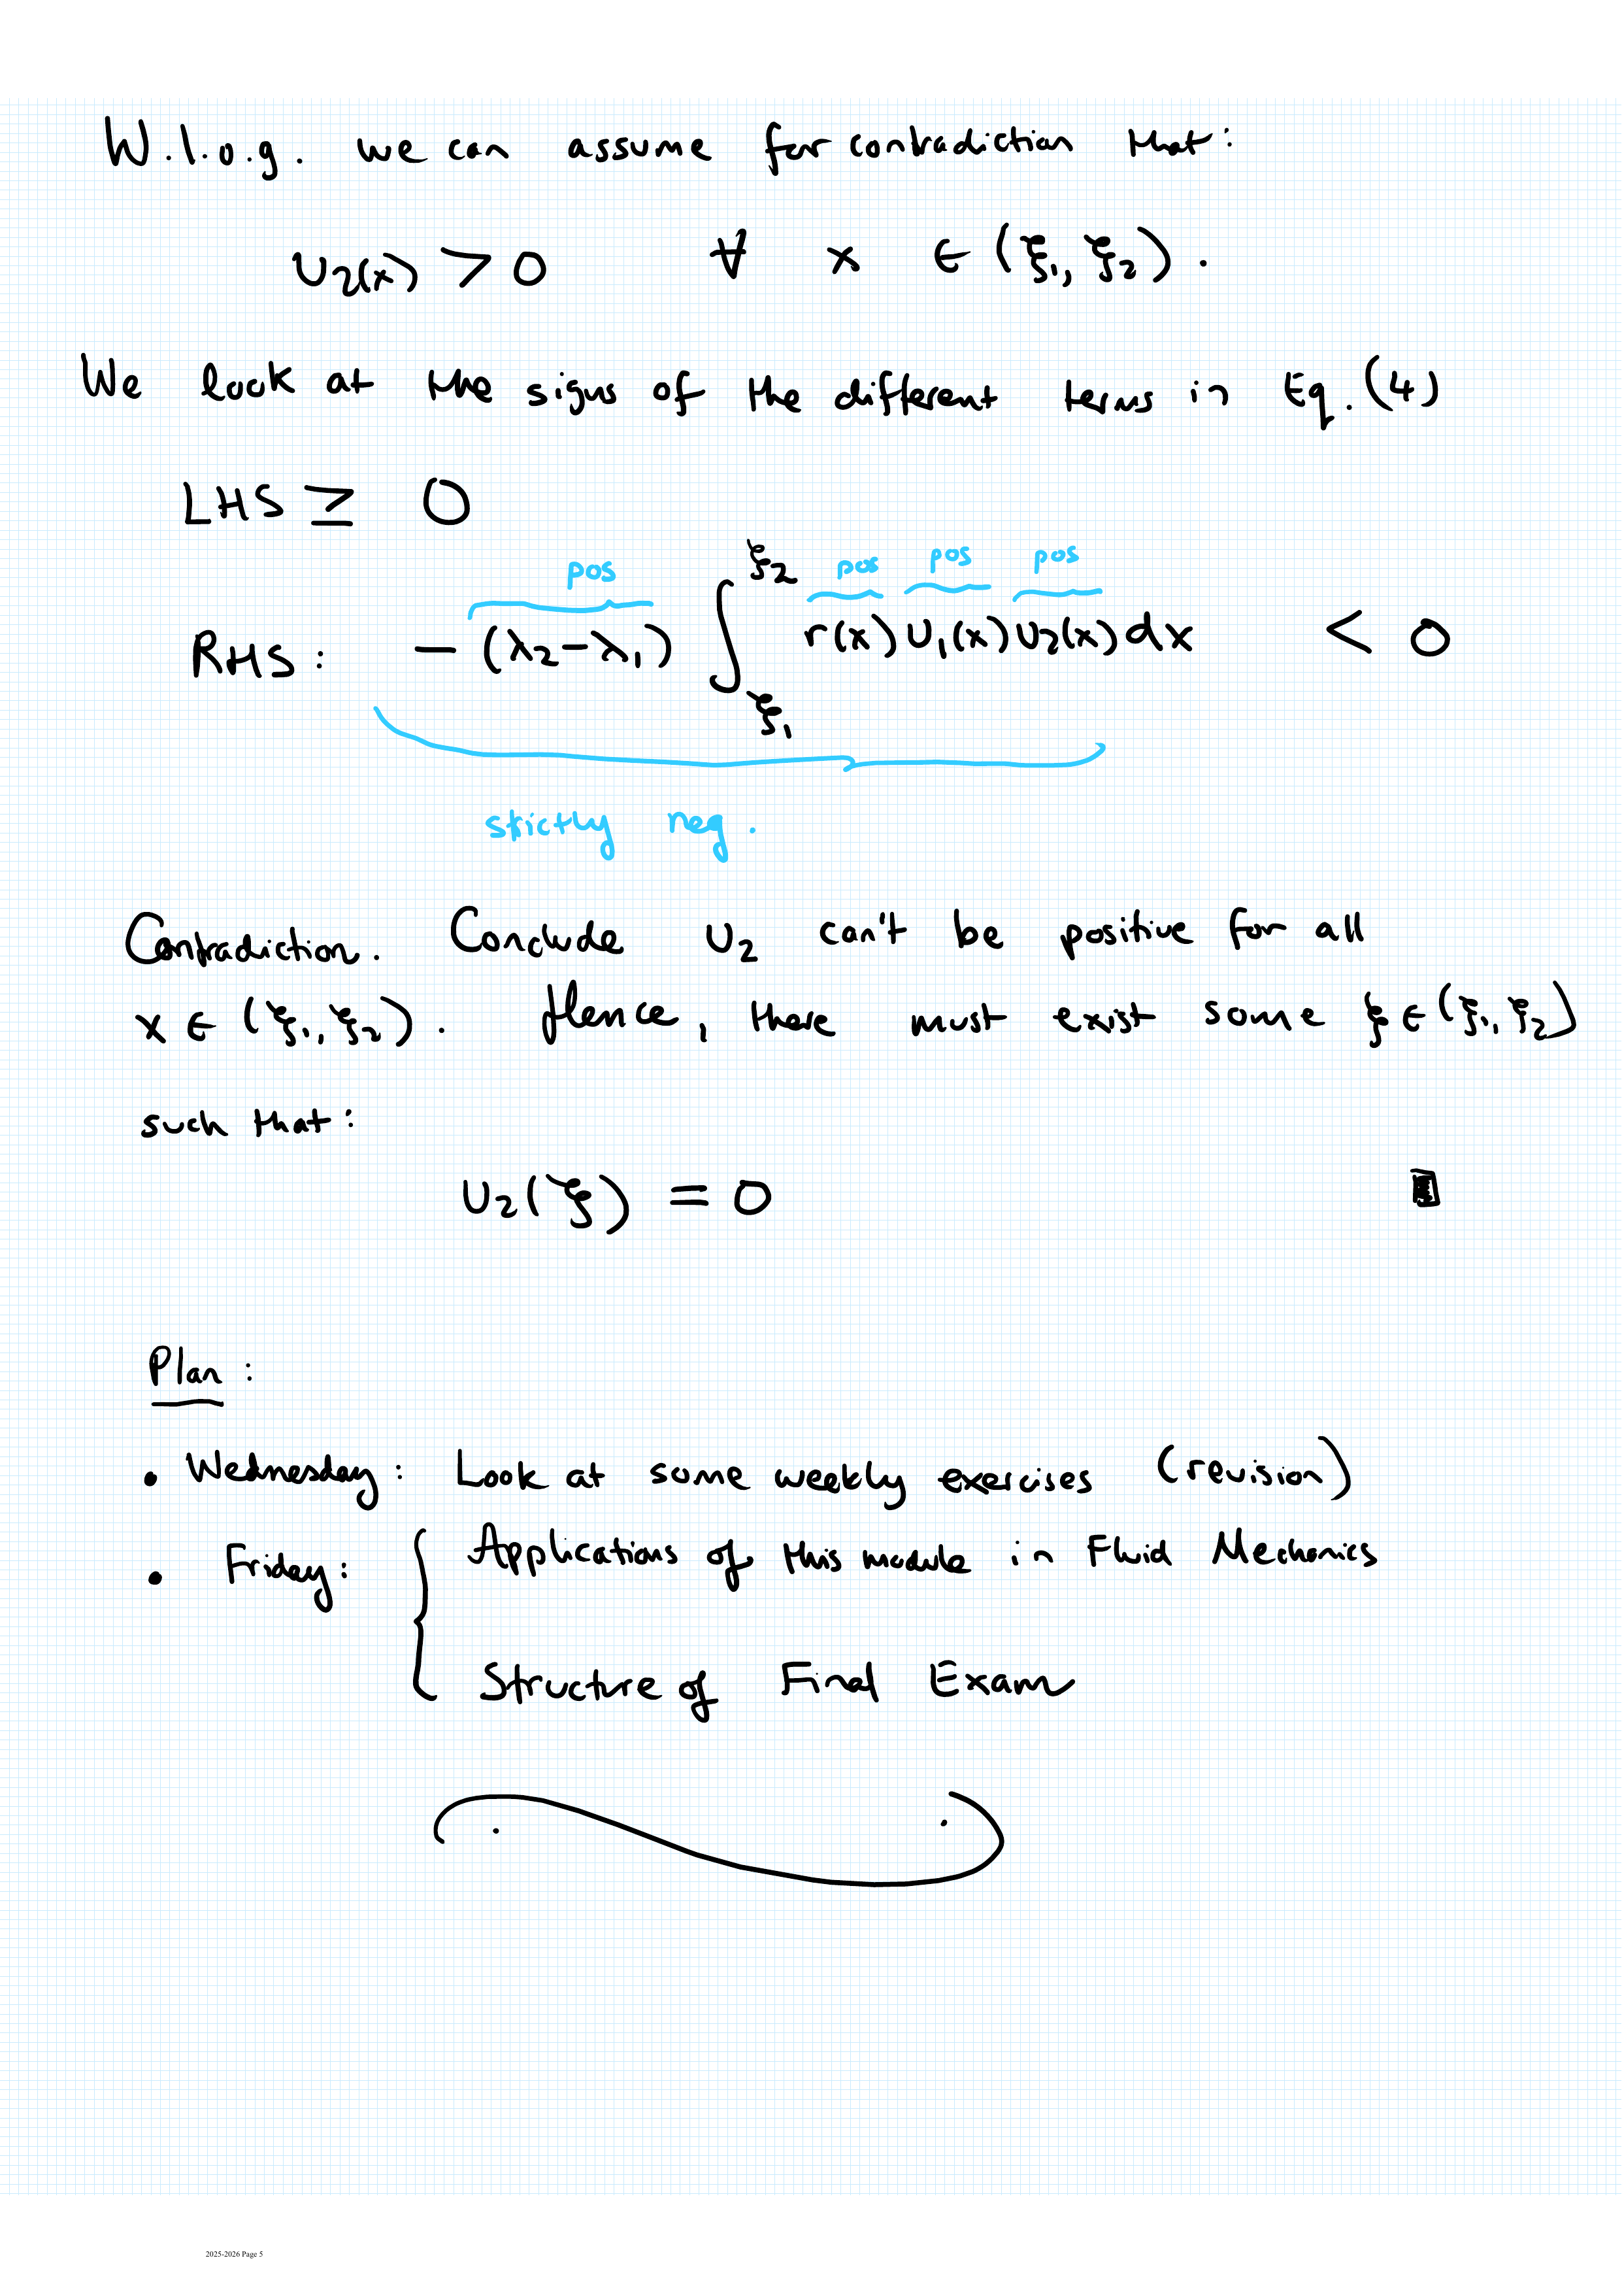 W.l.o.g. we can assume for contradiction that:
U₂(x) > 0 ∀ x ∈ (ξ₁, ξ₂).
We look at the signs of the different terms in Eq. (4)
LHS ≥ 0
pos pos pos pos
RHS: −(λ₂−λ₁) ∫_{ξ₁}^{ξ₂} r(x) U₁(x) U₂(x) dx < 0
strictly neg.
Contradiction. Conclude U₂ can't be positive for all
x ∈ (ξ₁, ξ₂). Hence, there must exist some ξ ∈ (ξ₁, ξ₂)
such that:
U₂(ξ) = 0
Plan:
• Wednesday: Look at some weekly exercises (revision)
• Friday: { Applications of this module in Fluid Mechanics
Structure of Final Exam
2025-2026 Page 5